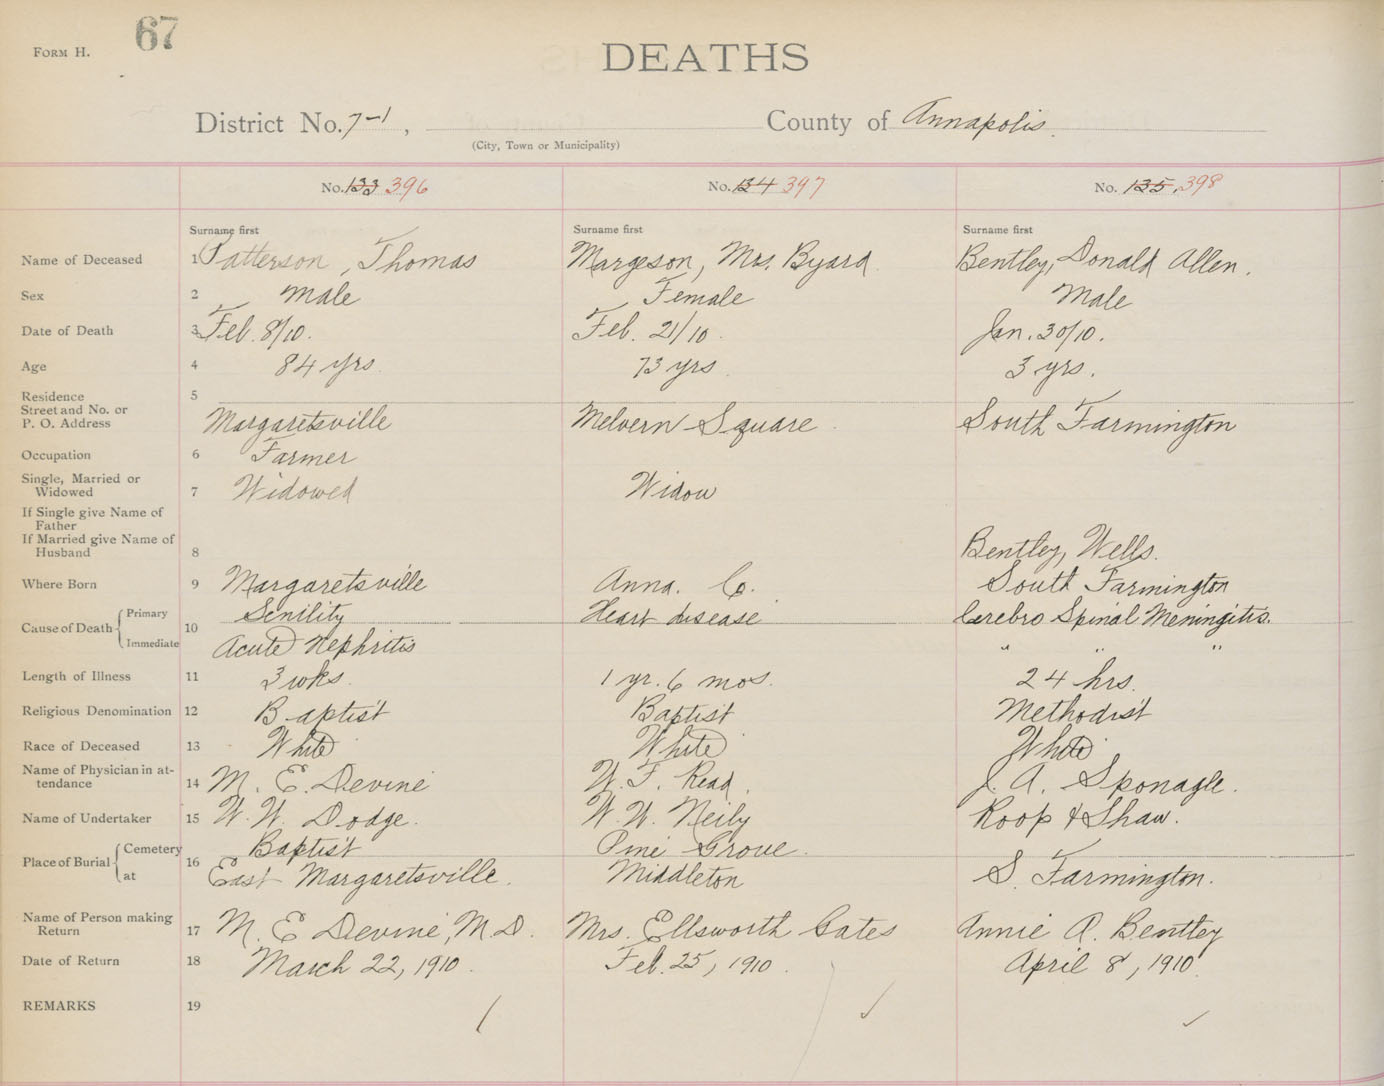 FORM H. 67
DEATHS
District No. 7-1, County of Annapolis.
(City, Town or Municipality)
No. 133 396 No. 134 397 No. 135. 398
Surname first Surname first Surname first
Name of Deceased 1 Patterson, Thomas Margeson, Mrs. Byard Bentley, Donald Allen.
Sex 2 Male Female Male
Date of Death 3 Feb. 8/10. Feb. 21/10. Jan. 30/10.
Age 4 84 yrs. 73 yrs. 3 yrs.
Residence 5
Street and No. or
P. O. Address Margaretsville Melvern Square South Farmington
Occupation 6 Farmer
Single, Married or
Widowed 7 Widowed Widow
If Single give Name of
Father
If Married give Name of
Husband 8 Bentley, Wells.
Where Born 9 Margaretsville Anna. Co. South Farmington
Cause of Death Primary 10 Senility Heart disease Cerebro Spinal Meningitis.
Immediate Acute Nephritis " " "
Length of Illness 11 3 wks. 1 yr. 6 mos. 24 hrs.
Religious Denomination 12 Baptist Baptist Methodist
Race of Deceased 13 White White White
Name of Physician in at-
tendance 14 M. E. Devine W. F. Read. J. A. Sponagle.
Name of Undertaker 15 W. W. Dodge. W. W. Neily Roop & Shaw.
Place of Burial Cemetery 16 Baptist Pine Grove.
at East Margaretsville. Middleton S. Farmington.
Name of Person making
Return 17 M. E Devine, M.D. Mrs. Ellsworth Gates Annie A. Bentley
Date of Return 18 March 22, 1910. Feb. 25, 1910. April 8, 1910.
REMARKS 19